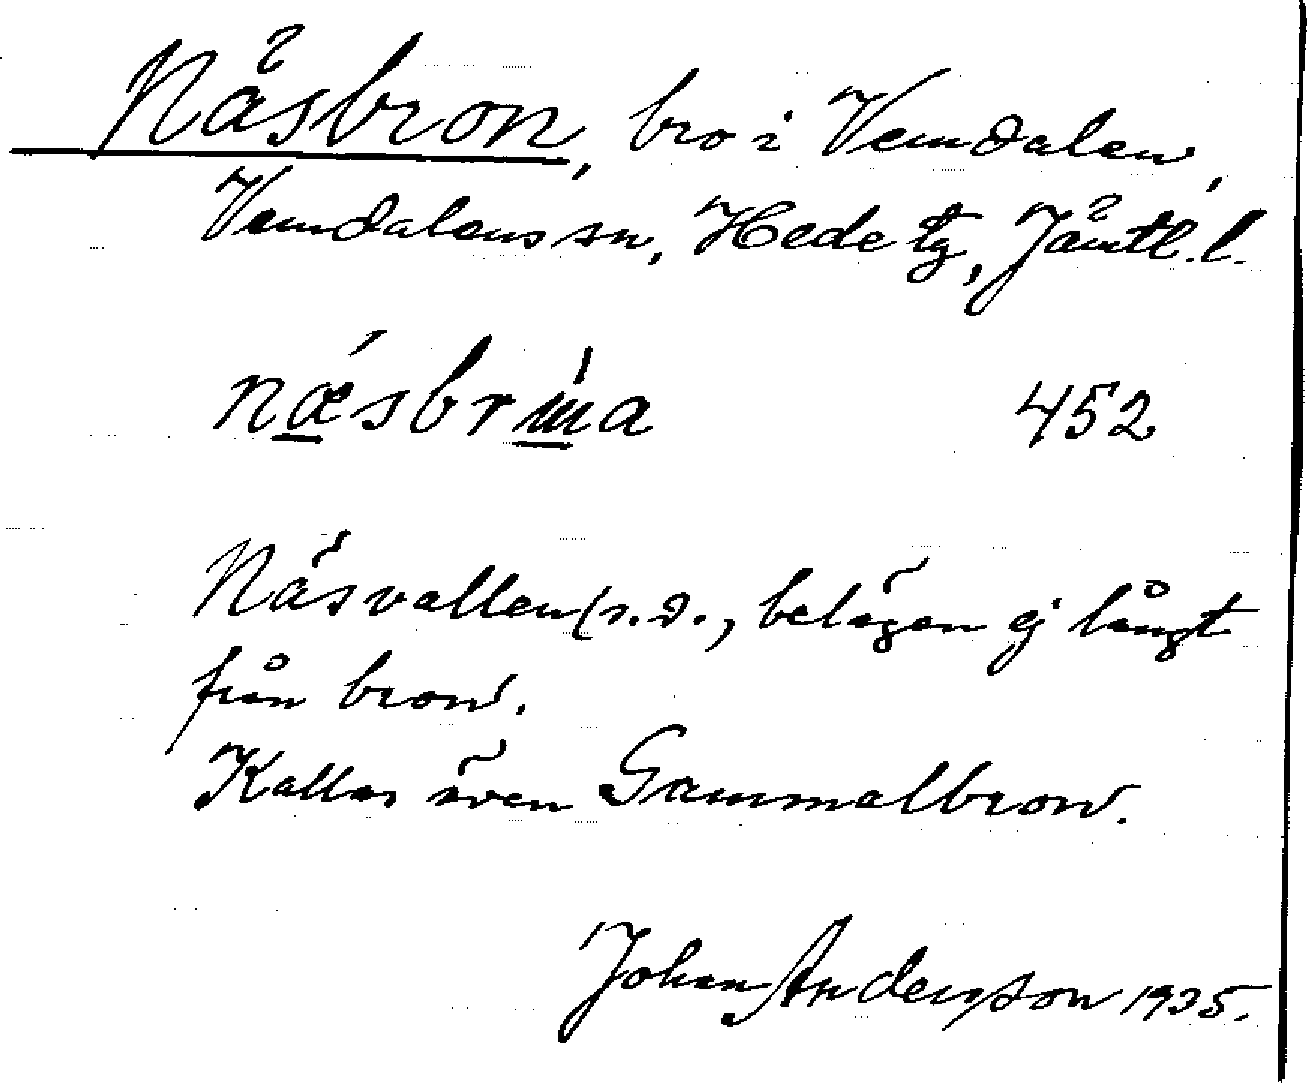 Näsbron, bro i Vemdalen,
Vemdalens sn, Hede tg, Jämtl. l.
452
Näsvallen s.d., belägen ej långt
från bron.
Kallas även Gammalbron.
Johan Andersson 1935.